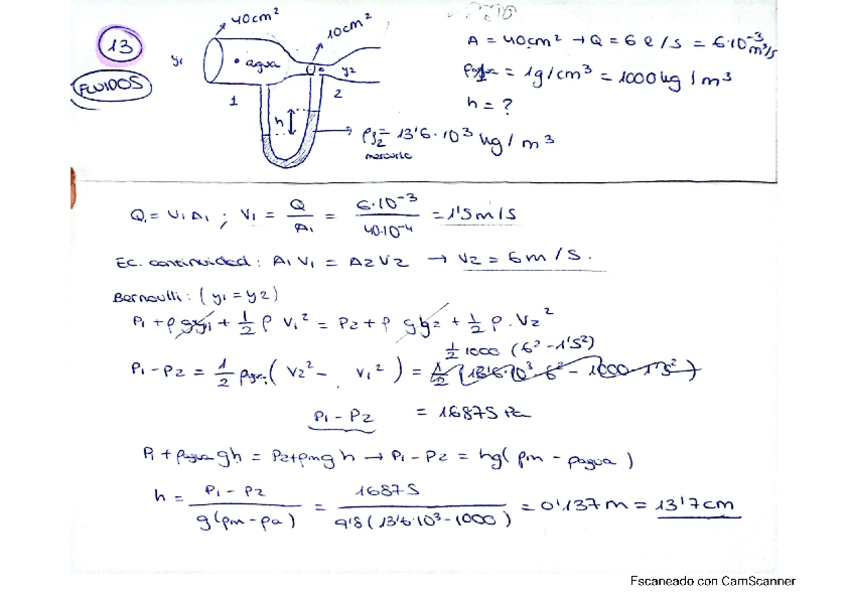 13
FLUIDOS
40cm²
10cm²
y1
agua
y2
1
2
h
ρf2 = 13'6·10³ kg/m³
mercurio
A = 40cm² → Q = 6 l/s = 6·10⁻³ m³/s
= 1g/cm³ = 1000 kg/m³
h = ?
Q = V1A1 ; V1 = Q/A1 = 6·10⁻³/40·10⁻⁴ = 1'5m/s
Ec. continuidad: A1V1 = A2V2 → V2 = 6m/s.
Bernoulli: (y1 = y2)
P1 + ρgy1 + 1/2 ρ V1² = P2 + ρ gy2 + 1/2 ρ · V2²
1/2 1000 (6² - 1'5²)
P1 - P2 = 1/2 ρagua (V2² - V1²) = 1/2 (13'6·10³·6² - 1000·1'5²)
P1 - P2 = 16875 Pa
P1 + ρagua gh = P2 + ρm g h → P1 - P2 = hg(ρm - ρagua)
h = P1 - P2/g(ρm - ρa) = 16875/9'8(13'6·10³ - 1000) = 0'137m = 13'7cm
Escaneado con CamScanner